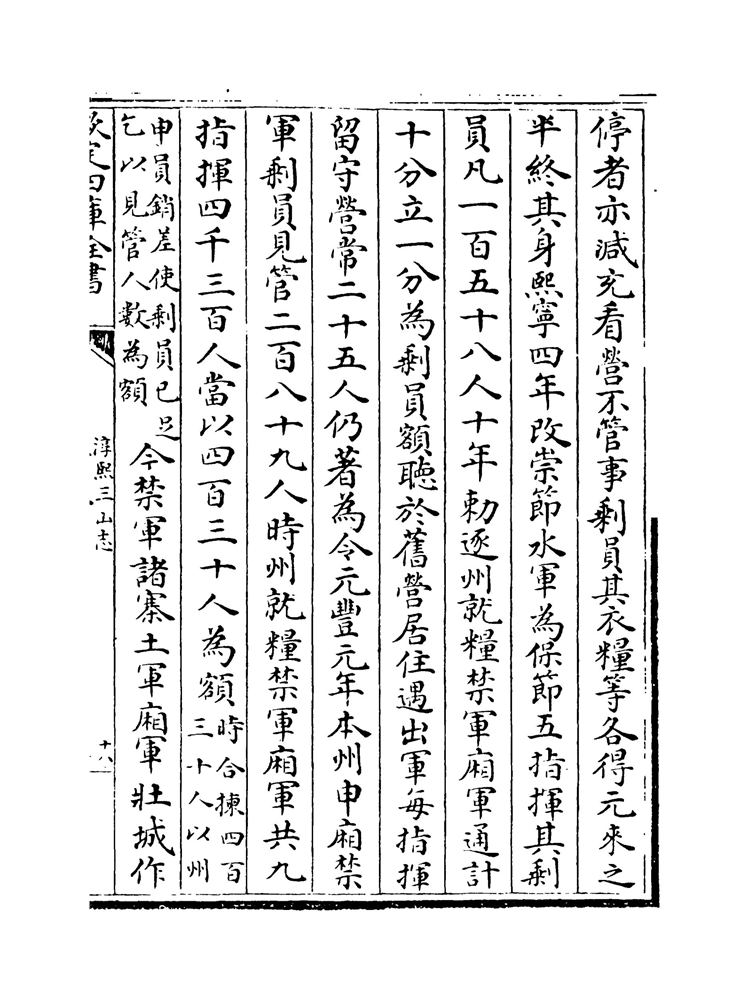 停者亦減充看營不管事剩員其衣糧等各得元來之
半終其身熙寧四年改崇節水軍為保節五指揮其剩
員凡一百五十八人十年勅逐州就糧禁軍廂軍通計
十分立一分為剩員額聽於舊營居住遇出軍每指揮
留守營常二十五人仍著為令元豐元年本州申廂禁
軍剩員見管二百八十九人時州就糧禁軍廂軍共九
指揮四千三百人當以四百三十人為額時合揀四百
三十人以州
申員銷差使剩員已足
乞以見管人數為額今禁軍諸寨土軍廂軍壯城作
欽定四庫全書
淳熙三山志
十六